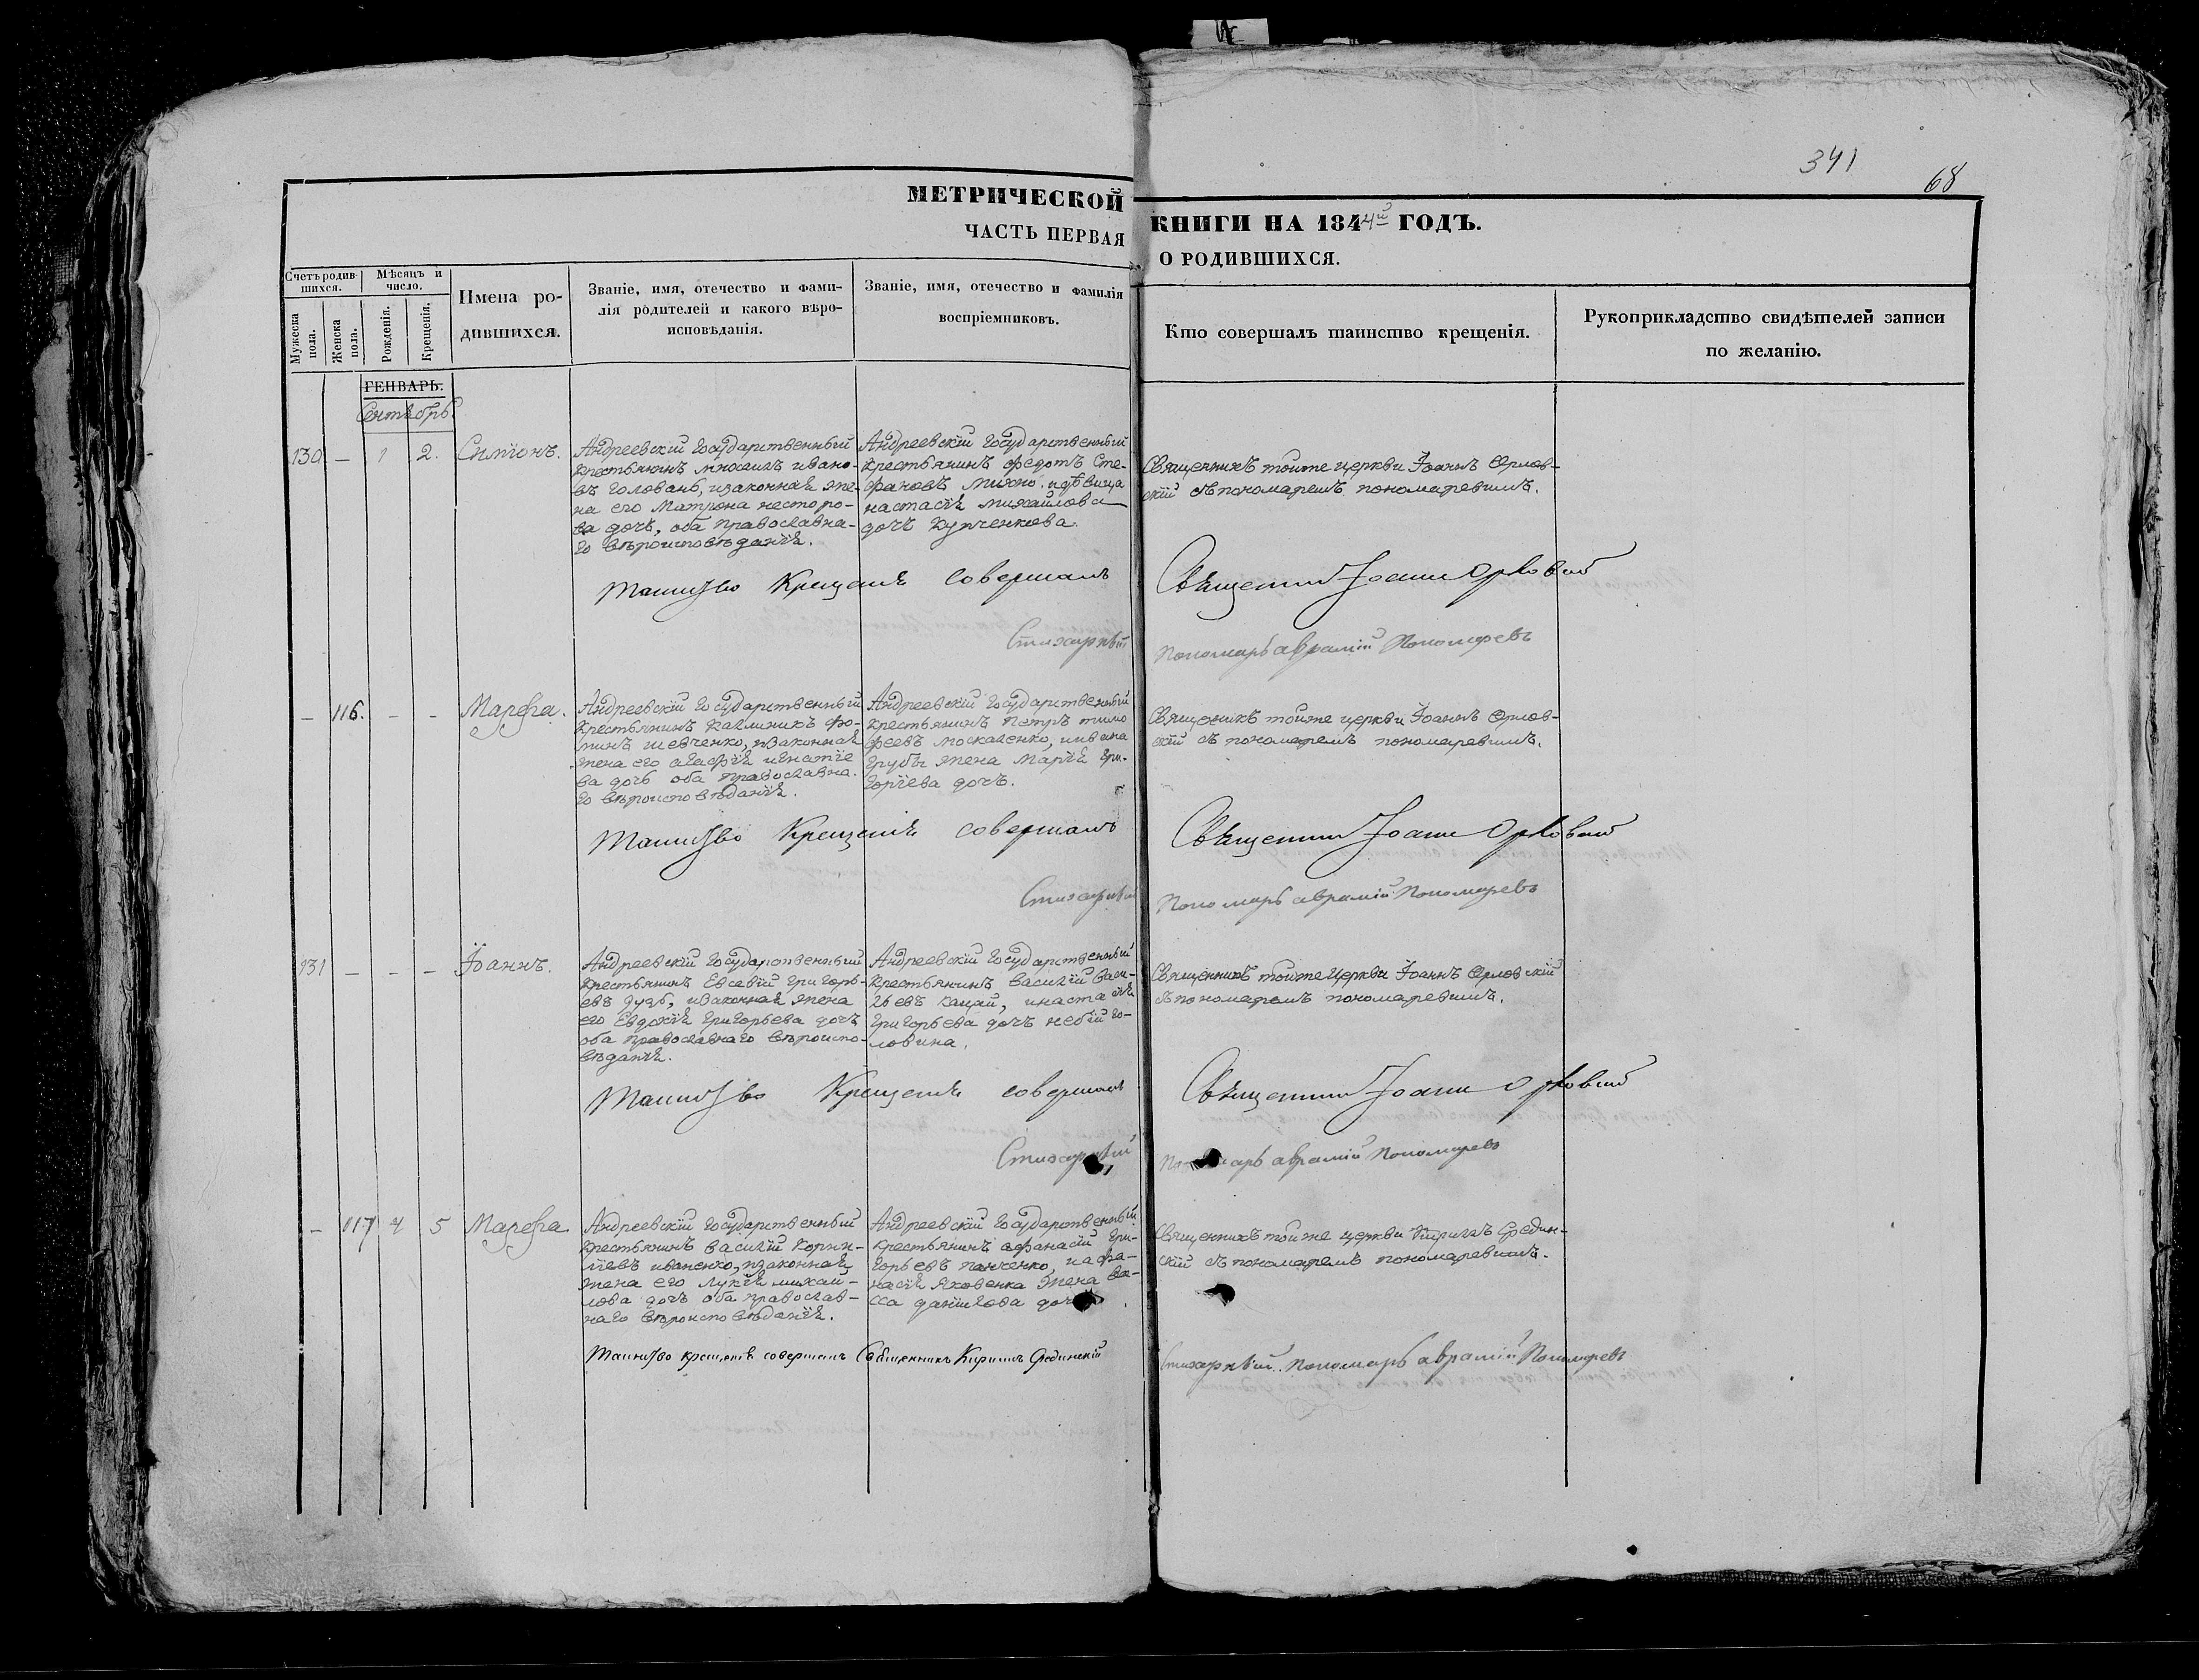 341
68
МЕТРИЧЕСКОЙ КНИГИ НА 1844й ГОДЪ.
ЧАСТЬ ПЕРВАЯ О РОДИВШИХСЯ.
Счетъ родив-
шихся.
Мужеска пола.
Женска пола.
Мѣсяцъ и
число.
Рожденія.
Крещенія.
Имена ро-
дившихся.
Званіе, имя, отечество и фами-
лія родителей и какого вѣро-
исповѣданія.
Званіе, имя, отечество и фамилія
воспріемниковъ.
Кто совершалъ таинство крещенія.
Рукоприкладство свидѣтелей записи
по желанію.
ГЕНВАРЬ.
Сентябрь
130 — 1 2. Симіонъ.
Андреевскій государственный
крестьянинъ ивано-
въ Головань, изаконная же-
на его Матрона несторо-
ва дочь, оба православна-
го вѣроисповѣданія.
Андреевскій государственный
крестьянинъ федотъ Сте-
фановъ михно, идѣвица
настасія михайлова
дочь купченкова.
Священникъ тойже церкви Іоаннъ Орлов-
скій съ пономаремъ пономаревимъ.
Таинство Крещенія совершалъ Священникъ Іоаннъ Орловскій
Стихарный Пономарь аврамій Пономаревъ
— 116. — — Марфа.
Андреевскій государственный
крестьянинъ калиникъ фо-
минъ шевченко, изаконная
жена его агафія игнатіе
ва дочь оба православна-
го вѣроисповѣданія.
Андреевскій государственный
крестьянинъ петръ тимо
феевъ москаленко, иивана
грубы жена Марія гри-
горіева дочь.
Священникъ тойже церкви Іоаннъ Орлов-
скій съ пономаремъ пономаревимъ.
Таинство Крещенія совершалъ Священникъ Іоаннъ Орловскій
Стихарный Пономарь аврамій Пономаревъ
131 — — — Іоаннъ.
Андреевскій государственный
крестьянинъ Евсевій григорь-
евъ дузь, изаконная жена
его Евдокія григорьева дочь
оба православнаго вѣроиспо-
вѣданія.
Андреевскій государственный
крестьянинъ василій васи-
льевъ кацай, инастасія
григорьева дочь небій го-
ловина.
Священникъ тойже церкви Іоаннъ Орловскій
съ пономаремъ пономаревимъ.
Таинство Крещенія совершалъ Священникъ Іоаннъ Орловскій
Стихарный Пономарь аврамій Пономаревъ
— 117 4 5 Марфа
Андреевскій государственный
крестьянинъ василій корни-
ліевъ иваненко, изаконная
жена его Лукія михай-
лова дочь оба православ-
наго вѣроисповѣданія.
Андреевскій государственный
крестьянинъ афанасій гри-
горьевъ панченко, иафа-
насія яковенка жена ва-
сса даниілова дочь.
Священникъ тойже церкви Кирилъ Средин-
скій съ пономаремъ пономаревимъ.
Таинство крещенія совершалъ Священникъ Кирилъ Срединскій Стихарный Пономарь аврамій Пономаревъ